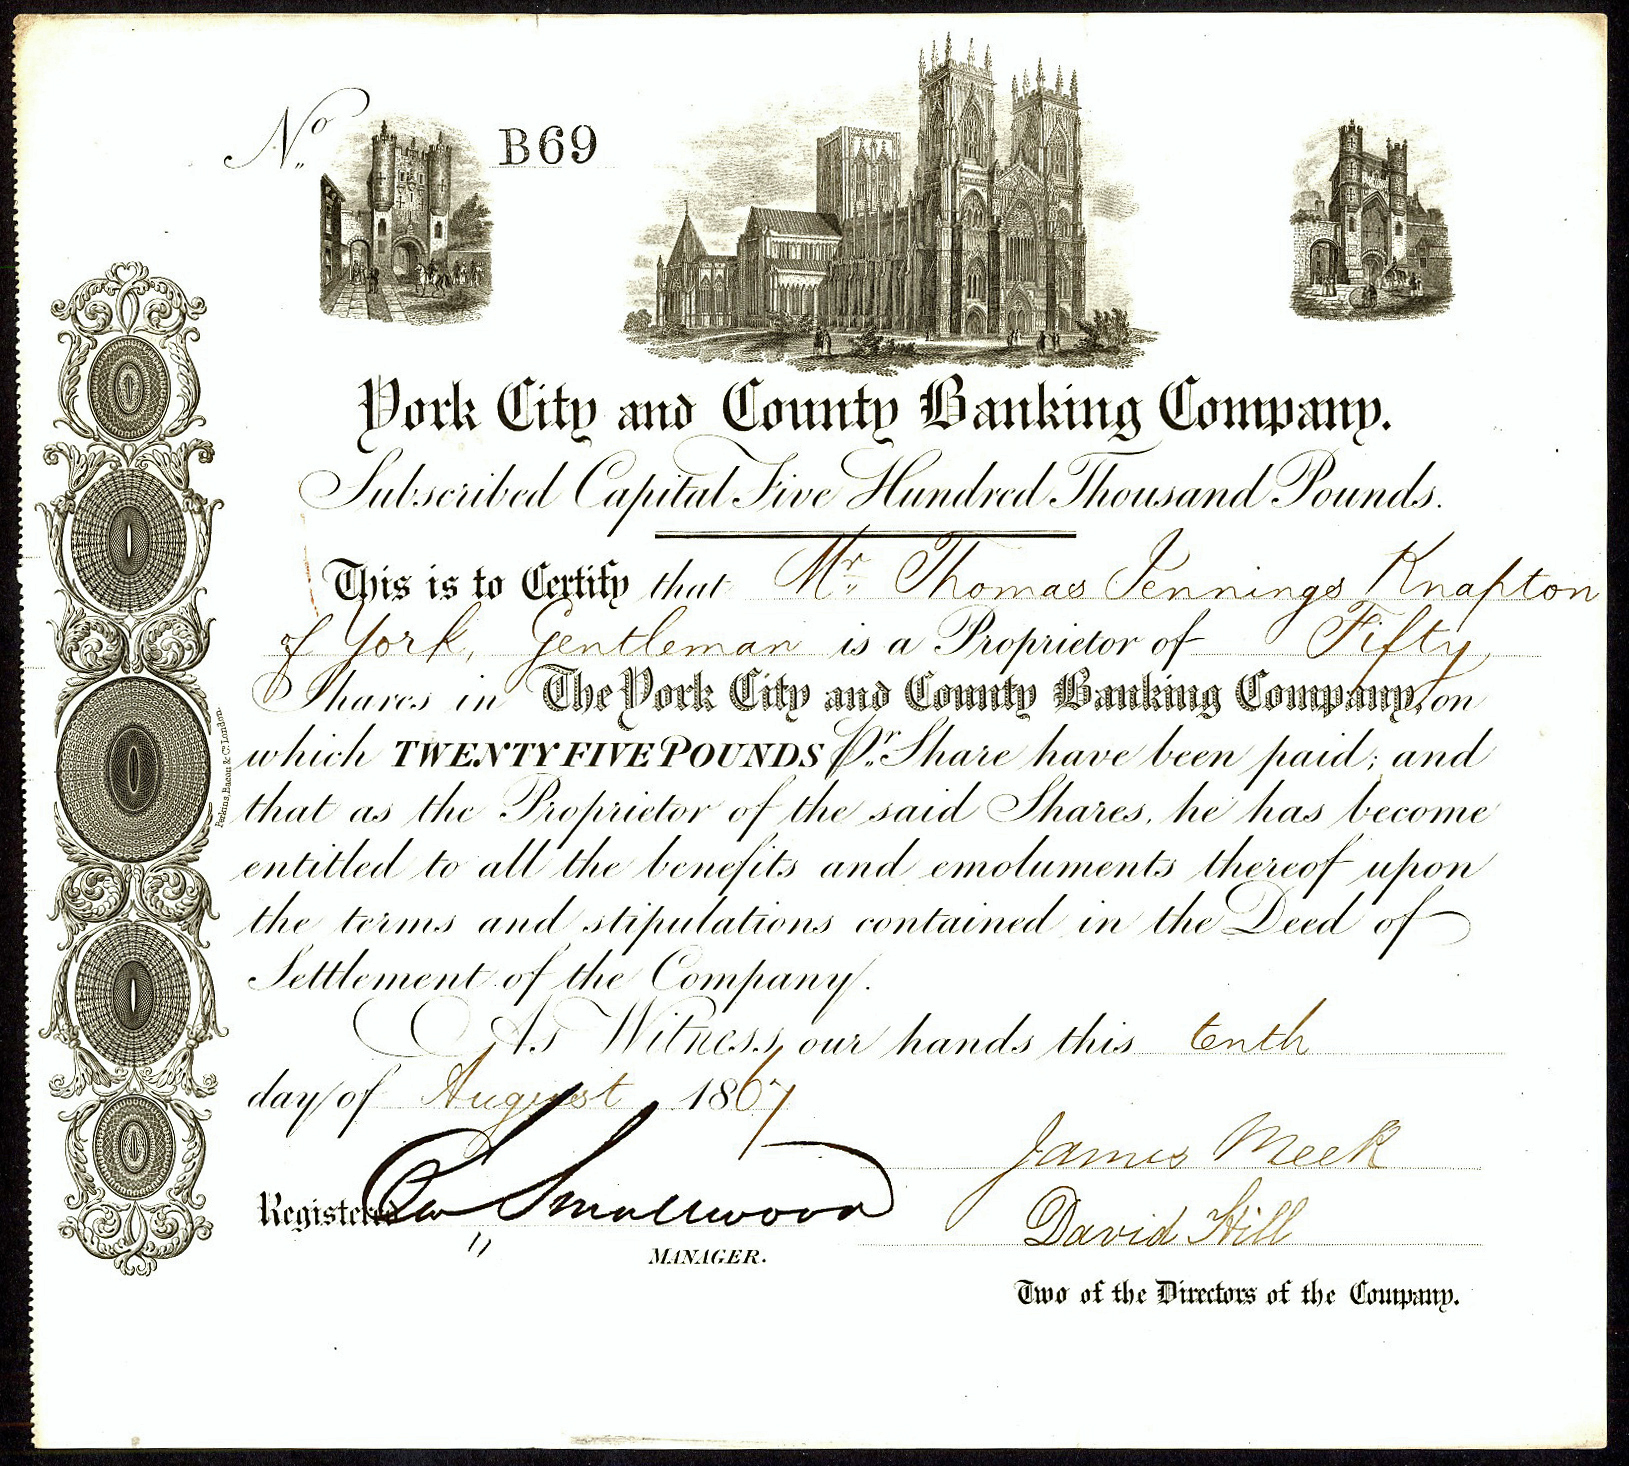 No. B69
York City and County Banking Company.
Subscribed Capital Five Hundred Thousand Pounds.
This is to Certify that Mr. Thomas Jennings Knapton
of York, Gentleman is a Proprietor of Fifty
Shares in The York City and County Banking Company, on
which TWENTY FIVE POUNDS Pr. Share have been paid; and
that as the Proprietor of the said Shares, he has become
entitled to all the benefits and emoluments thereof upon
the terms and stipulations contained in the Deed of
Settlement of the Company.
As Witness our hands this tenth
day of August 1867
James Meek
Registered Smallwood
David Hill
MANAGER.
Two of the Directors of the Company.
Perkins, Bacon & Co. London.